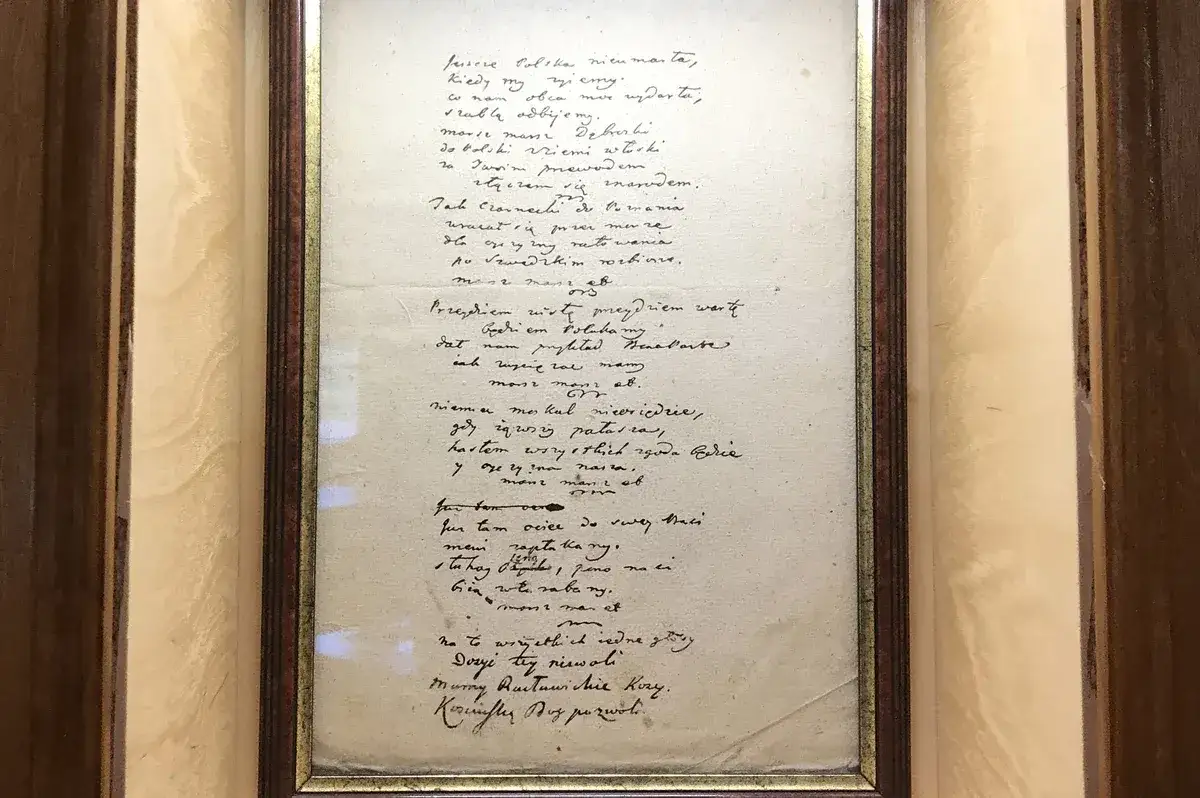 Jeszcze Polska nieumarła,
kiedy my żyiemy.
co nam obca moc wydarła,
szablą odbijemy.
marsz marsz Dąbroski
do Polski zziemi włoski
za Twoim przewodem
złączem się znarodem.
Jak Czarnecki do Poznania
wracał się przez morze
dla oyczyzny ratowania
po Szwedzkim rozbiorze.
marsz marsz etc
Przeydziem wisłę przeydziem wartę
będziem Polakamy
dał nam przykład Bonaparte
iak zwycięzac mamy
marsz marsz etc.
niemiec moskal nieosiędzie,
gdy iąwszy pałasza,
hasłem wszystkich zgoda będzie
y oyczyzna nasza.
marsz marsz etc
Już tam ociec
Już tam ociec do swey Basi
mówi zapłakany.
słuchay , pono nasi
biią wtarabany.
marsz marsz etc
na to wszystkich iedne głosy
Dosyć tey niewoli
Mamy Racławickie Kosy.
Kosciuszkę Bog pozwoli.